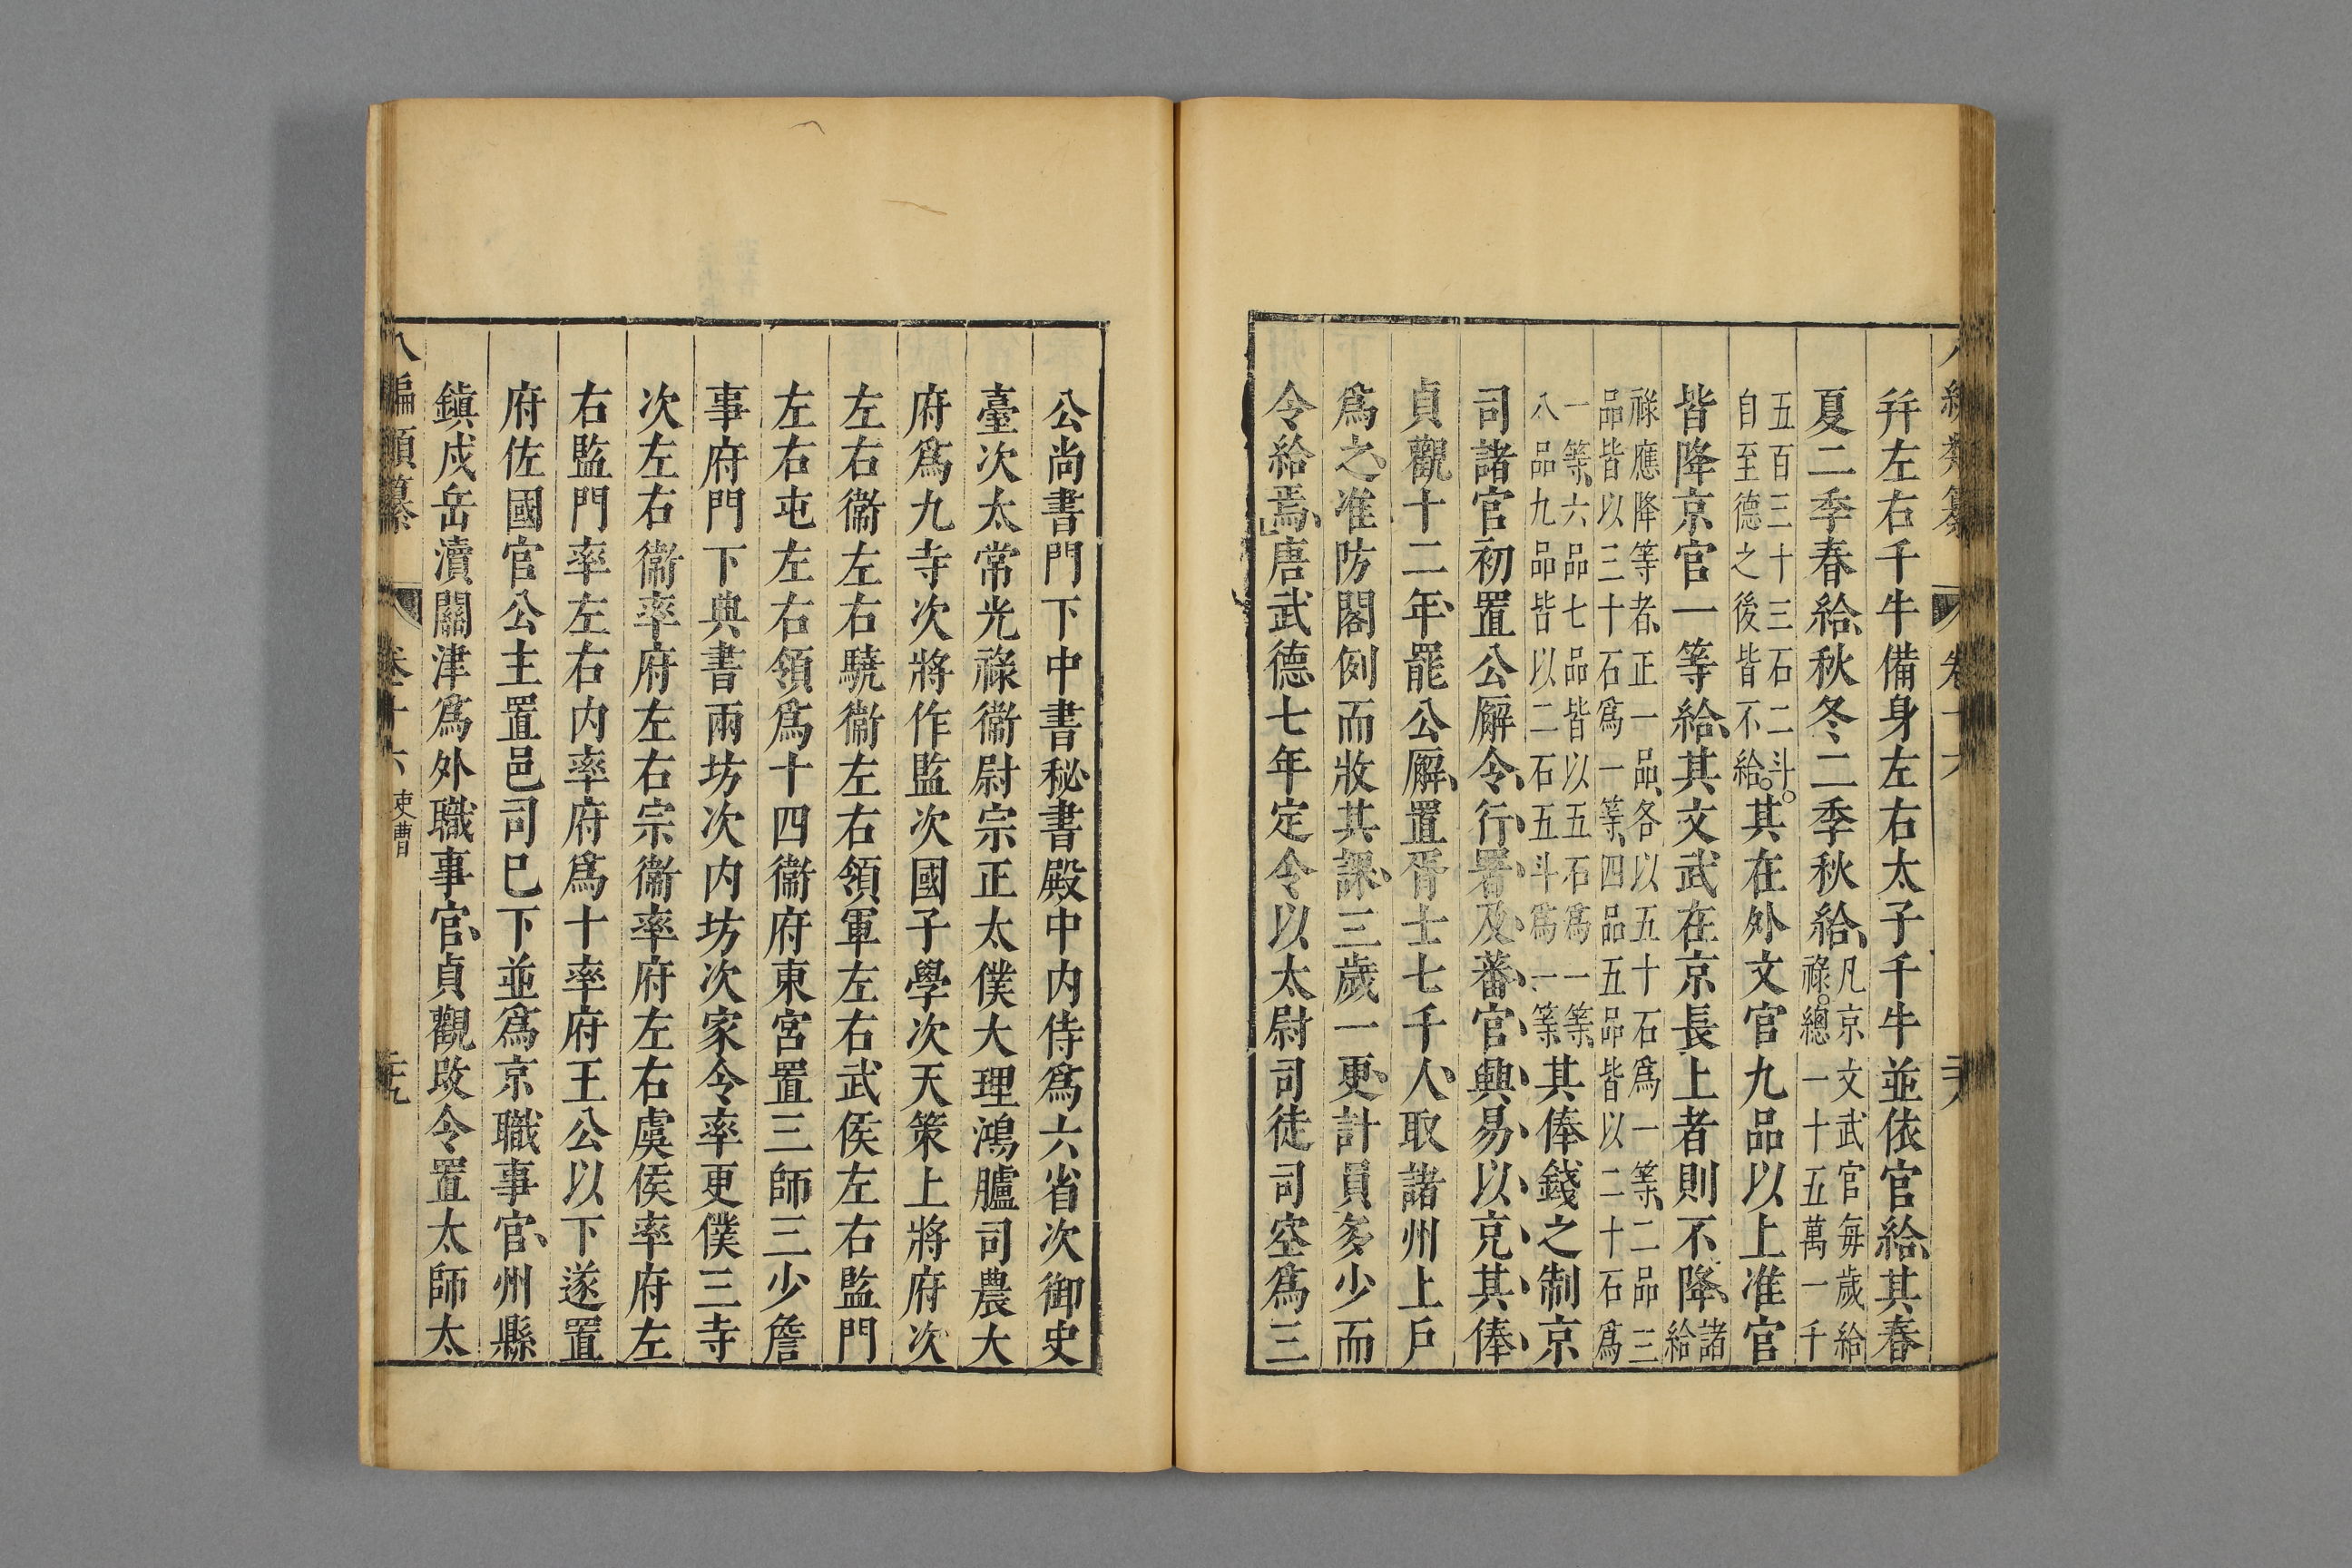 幷左右千牛備身左右太子千牛並依官給其春
夏二季春給秋冬二季秋給凡京文武官每歲給祿總一十五萬一千
五百三十三石二斗自至德之後皆不給其在外文官九品以上准官
皆降京官一等給其文武在京長上者則不降諸給
祿應降等者正一品各以五十石爲一等二品三品皆以三十石爲一等四品五品皆以二十石爲
一等六品七品皆以五石爲一等八品九品皆以二石五斗爲一等其俸錢之制京
司諸官初置公廨令行署及蕃官興易以充其俸
貞觀十二年罷公廨置胥士七千人取諸州上戶
爲之准防閤例而收其課三歲一更計員多少而
令給焉唐武德七年定令以太尉司徒司空爲三
公尚書門下中書秘書殿中內侍爲六省次御史
臺次太常光祿衞尉宗正太僕大理鴻臚司農大
府爲九寺次將作監次國子學次天策上將府次
左右衞左右驍衞左右領軍左右武侯左右監門
左右屯左右領爲十四衞府東宮置三師三少詹
事府門下典書兩坊次內坊次家令率更僕三寺
次左右衞率府左右宗衞率府左右虞侯率府左
右監門率左右內率府爲十率府王公以下遂置
府佐國官公主置邑司巳下並爲京職事官州縣
鎮戍岳瀆關津爲外職事官貞觀改令置太師太
八編類纂 卷十六 吏曹